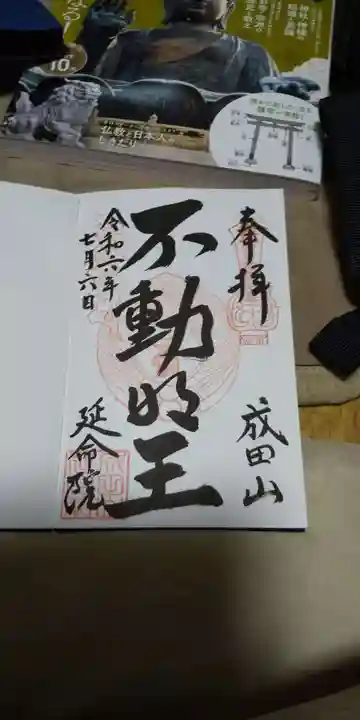 10
仏教と日本人の
しきたり
奉拝
成田山
不動明王
令和六年
七月六日
延命院